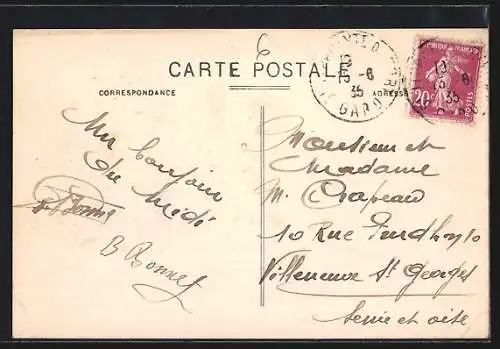 CARTE POSTALE
CORRESPONDANCE
ADRESSE
GARD
13 -8
35
REPUBLIQUE FRANÇAISE
20c
POSTES
Un bonjour
du Midi
B Bonnet
Monsieur et
Madame
M. Chapeau
10 Rue
Villeneuve St Georges
Seine et oise